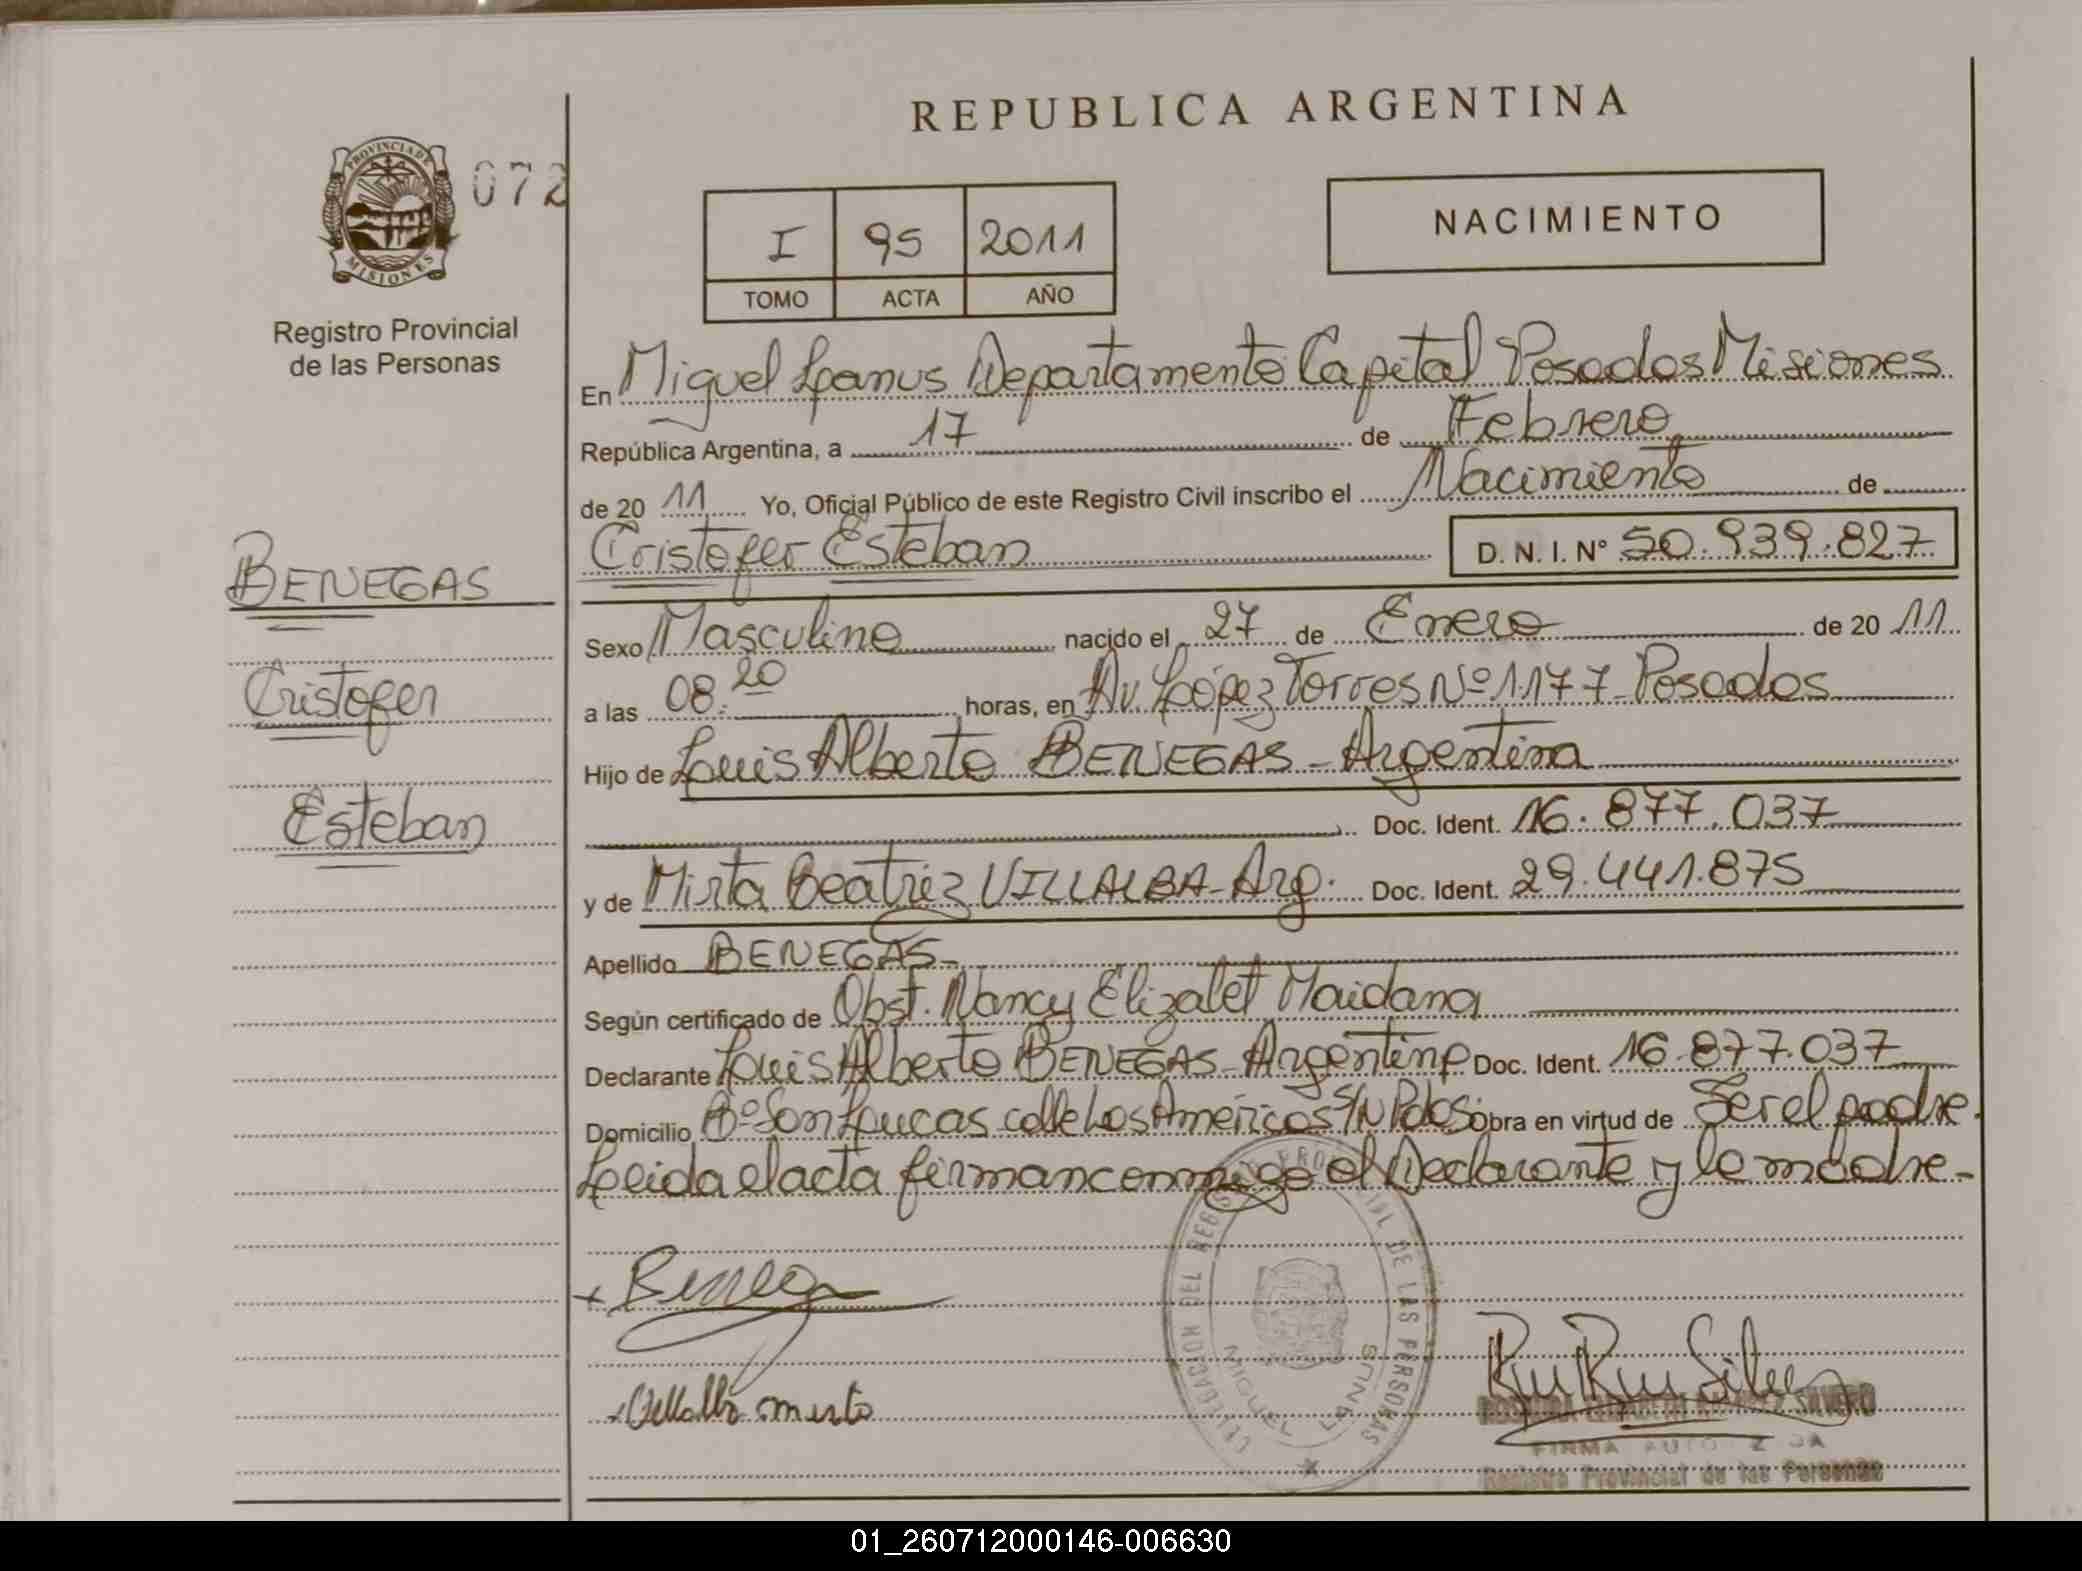 REPUBLICA ARGENTINA
PROVINCIA DE
MISIONES
072
Registro Provincial
de las Personas
I 95 2011
TOMO ACTA AÑO
NACIMIENTO
En Miguel Lanus Departamento Capital Posadas Misiones
República Argentina, a 17 de Febrero
de 20 11 Yo, Oficial Público de este Registro Civil inscribo el Nacimiento de
Cristofer Esteban D. N. I. Nº 50.939.827
BENEGAS
Cristofer
Esteban
Sexo Masculino nacido el 27 de Enero de 20 11
a las 08:20 horas, en Av. López Torres Nº 1177 Posadas
Hijo de Luis Alberto BENEGAS - Argentina
Doc. Ident. 16.877.037
y de Mirta Beatriz VILLALBA - Arg. Doc. Ident. 29.441.875
Apellido BENEGAS -
Según certificado de Obst. Nancy Elizabet Maidana
Declarante Luis Alberto BENEGAS - Argentino Doc. Ident. 16.877.037
Domicilio Bº San Lucas calle Los Américos S/N Pdas Obra en virtud de Ser el padre.
Leida el acta firman conmigo el Declarante y la madre -
DELEGACION DEL REGISTRO PROVINCIAL DE LAS PERSONAS
MIGUEL LANUS
FIRMA AUTORIZADA
Registro Provincial de las Personas
01_260712000146-006630